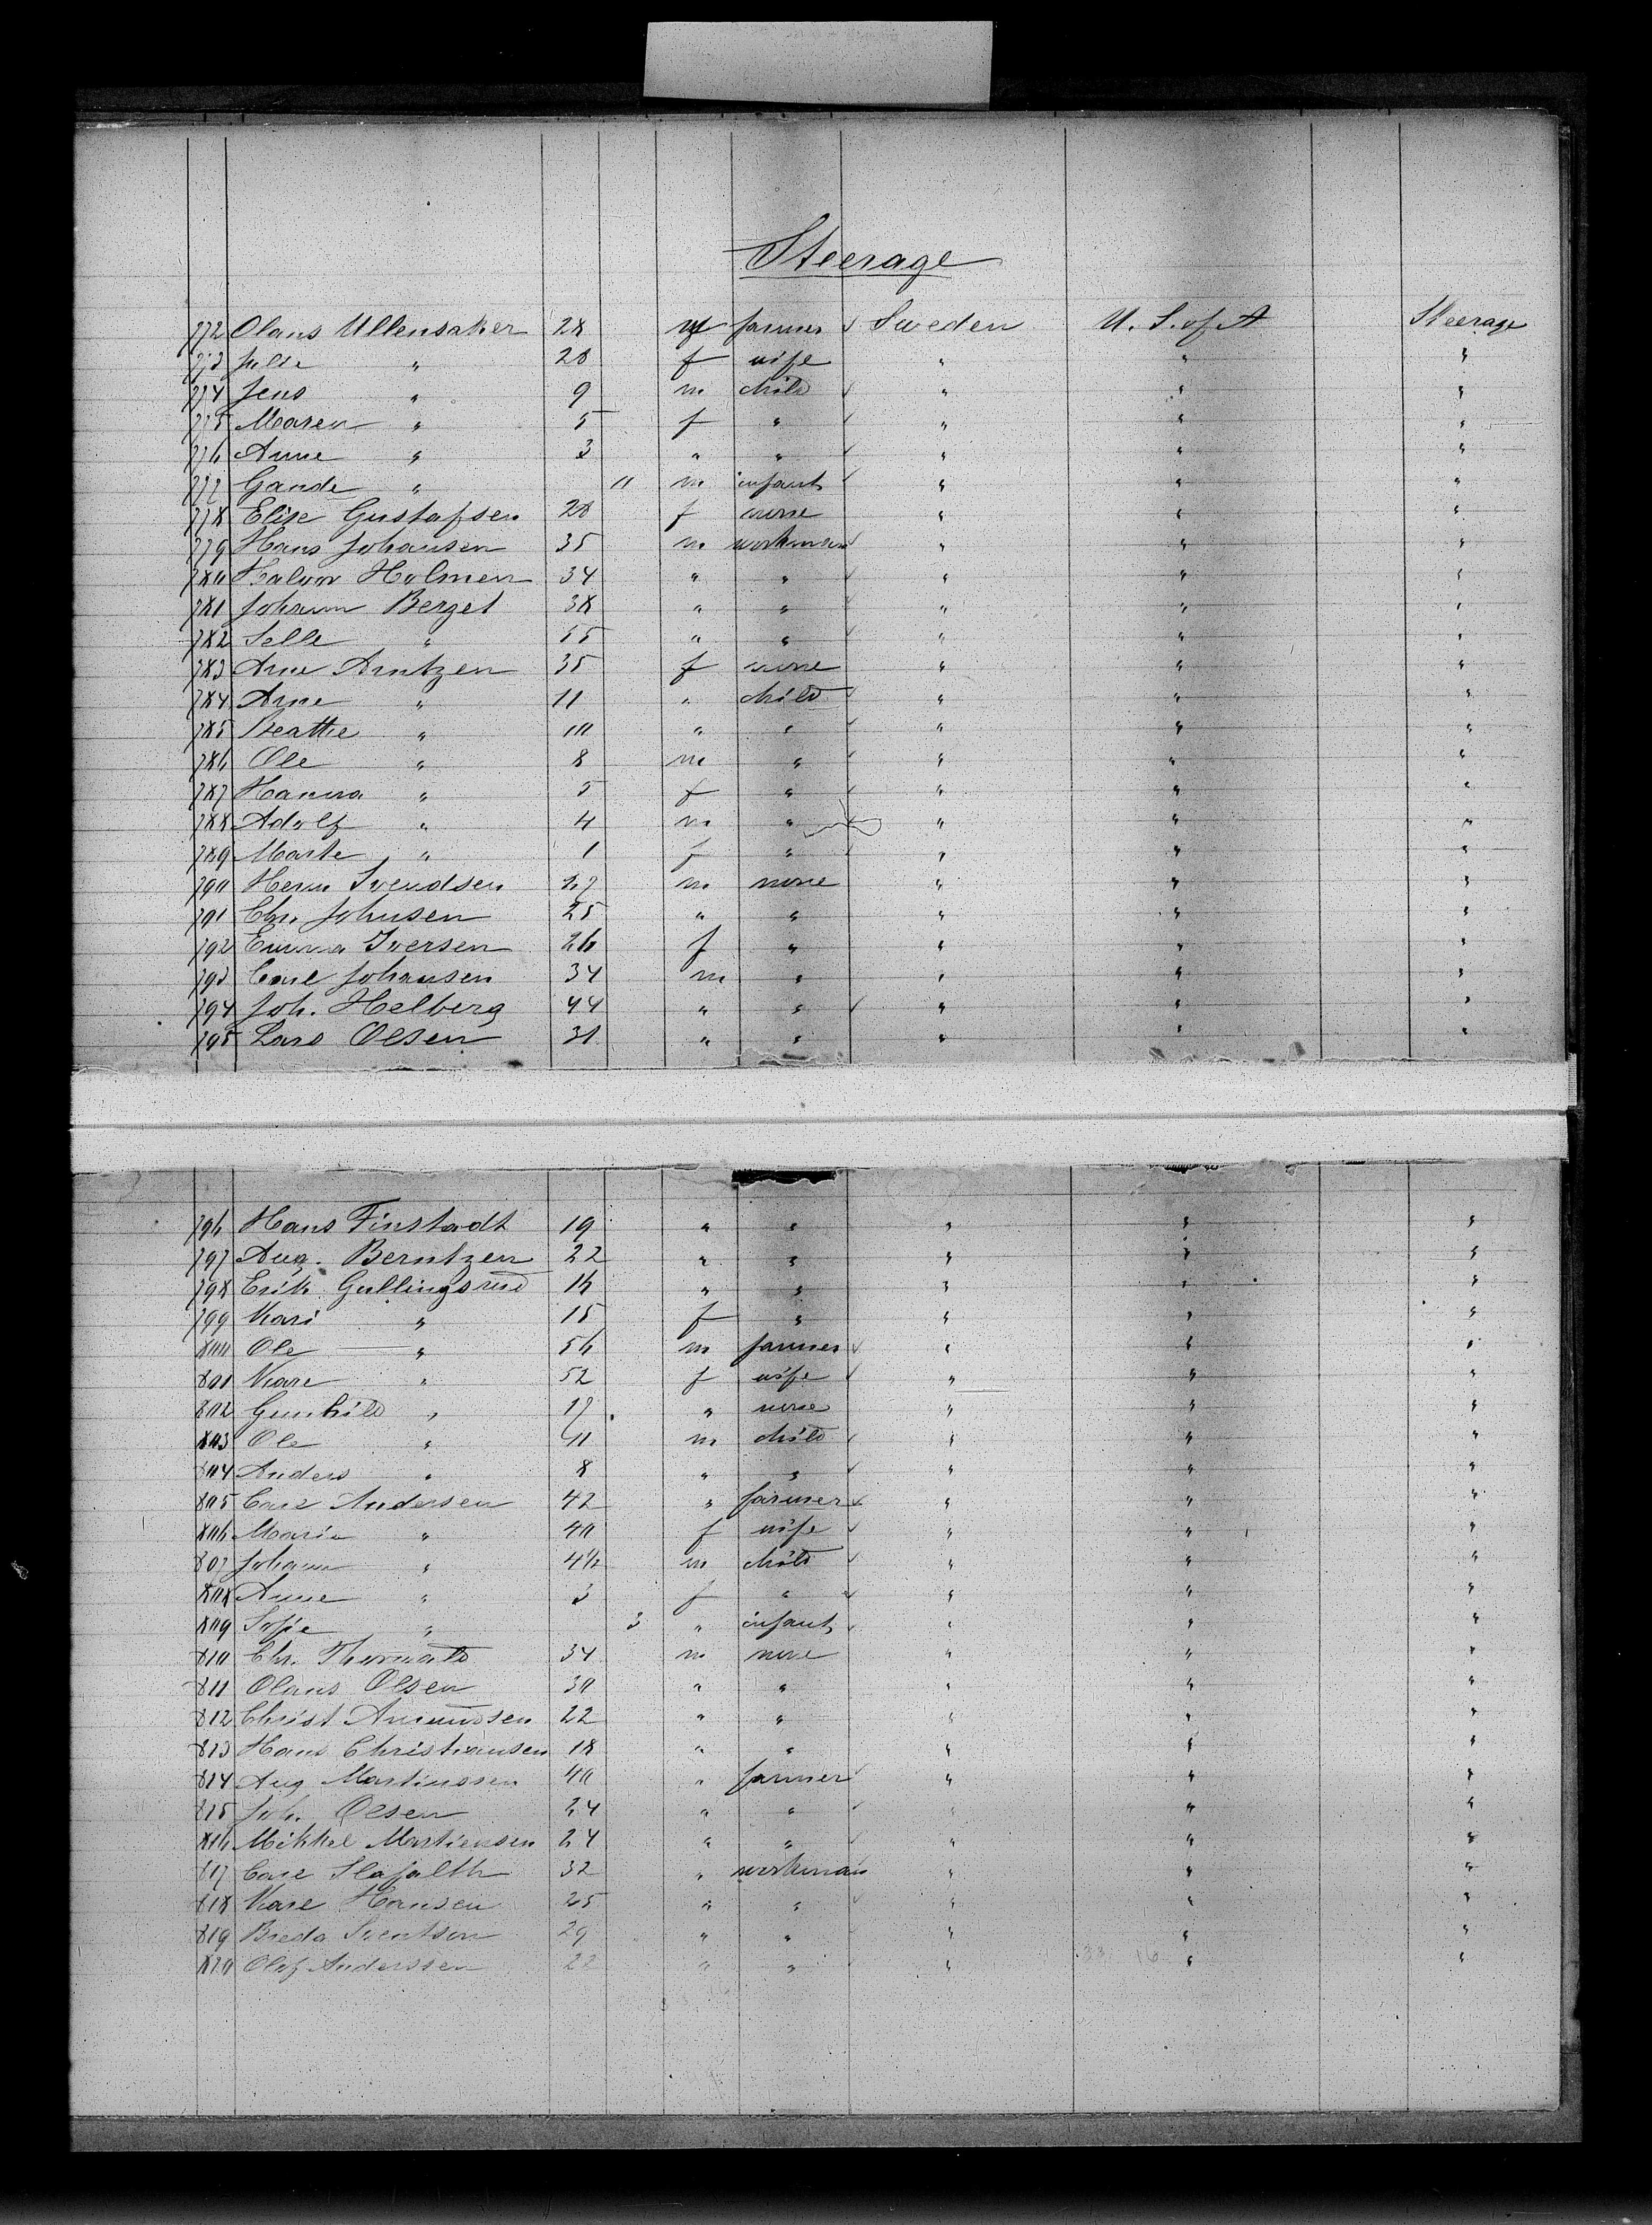 Steerage
772 Olaus Ullensaker 28 m farmer ✓ Sweden U. S. of A Steerage
773 Julie " 28 f wife " " "
774 Jens " 9 m child ✓ " " "
775 Maren " 5 f " ✓ " " "
776 Anne " 3 " " ✓ " " "
777 Gande " 11 m infant ✓ " " "
778 Elise Gustafsen 28 f none " " "
779 Hans Johansen 35 m workman ✓ " " "
780 Halvor Holmen 34 " " ✓ " " "
781 Johann Berget 38 " " ✓ " " "
782 Selle " 55 " " ✓ " " "
783 Arne Arntzen 35 f none " " "
784 Arne " 11 " child ✓ " " "
785 Beathe " 10 " " ✓ " " "
786 Ole " 8 m " ✓ " " "
787 Hanna " 5 f " ✓ " " "
788 Adolf " 4 m " " " "
789 Marte " 1 f " ✓ " " "
790 Herm Svendsen 27 m none " " "
791 Chr. Johnsen 25 " " " " "
792 Emma Iversen 26 f " " " "
793 Carl Johansen 34 m " " " "
794 Joh. Helberg 44 " " ✓ " " "
795 Lars Olsen 31 " " " " "
796 Hans Finstadt 19 " " " " "
797 Aug. Berntzen 22 " " " " "
798 Erik Gullingsrud 16 " " " " "
799 Kari " 15 f " " " "
800 Ole " 56 m farmer ✓ " " "
801 Kare " 52 f wife ✓ " " "
802 Gunhild " 17 " none " " "
803 Ole " 11 m child ✓ " " "
804 Anders " 8 " " ✓ " " "
805 Carl Andersen 42 " farmer ✓ " " "
806 Marie " 40 f wife ✓ " " "
807 Johann " 4½ m child ✓ " " "
808 Anne " 3 f " ✓ " " "
809 Sofie " 3 " infant ✓ " " "
810 Chr. Thorvald 34 m none " " "
811 Olaus Olsen 30 " " " " "
812 Christ Amundsen 22 " " " " "
813 Hans Christiansen 18 " " " " "
814 Aug Martinssen 40 " farmer ✓ " " "
815 Joh. Olsen 24 " " ✓ " " "
816 Mikkel Martiensen 24 " " ✓ " " "
817 Carl 32 " workman " " "
818 Kare Hansen 25 " " ✓ " " "
819 Breda Sventson 29 " " ✓ " " "
820 Olaf Anderssen 22 " " ✓ " " "